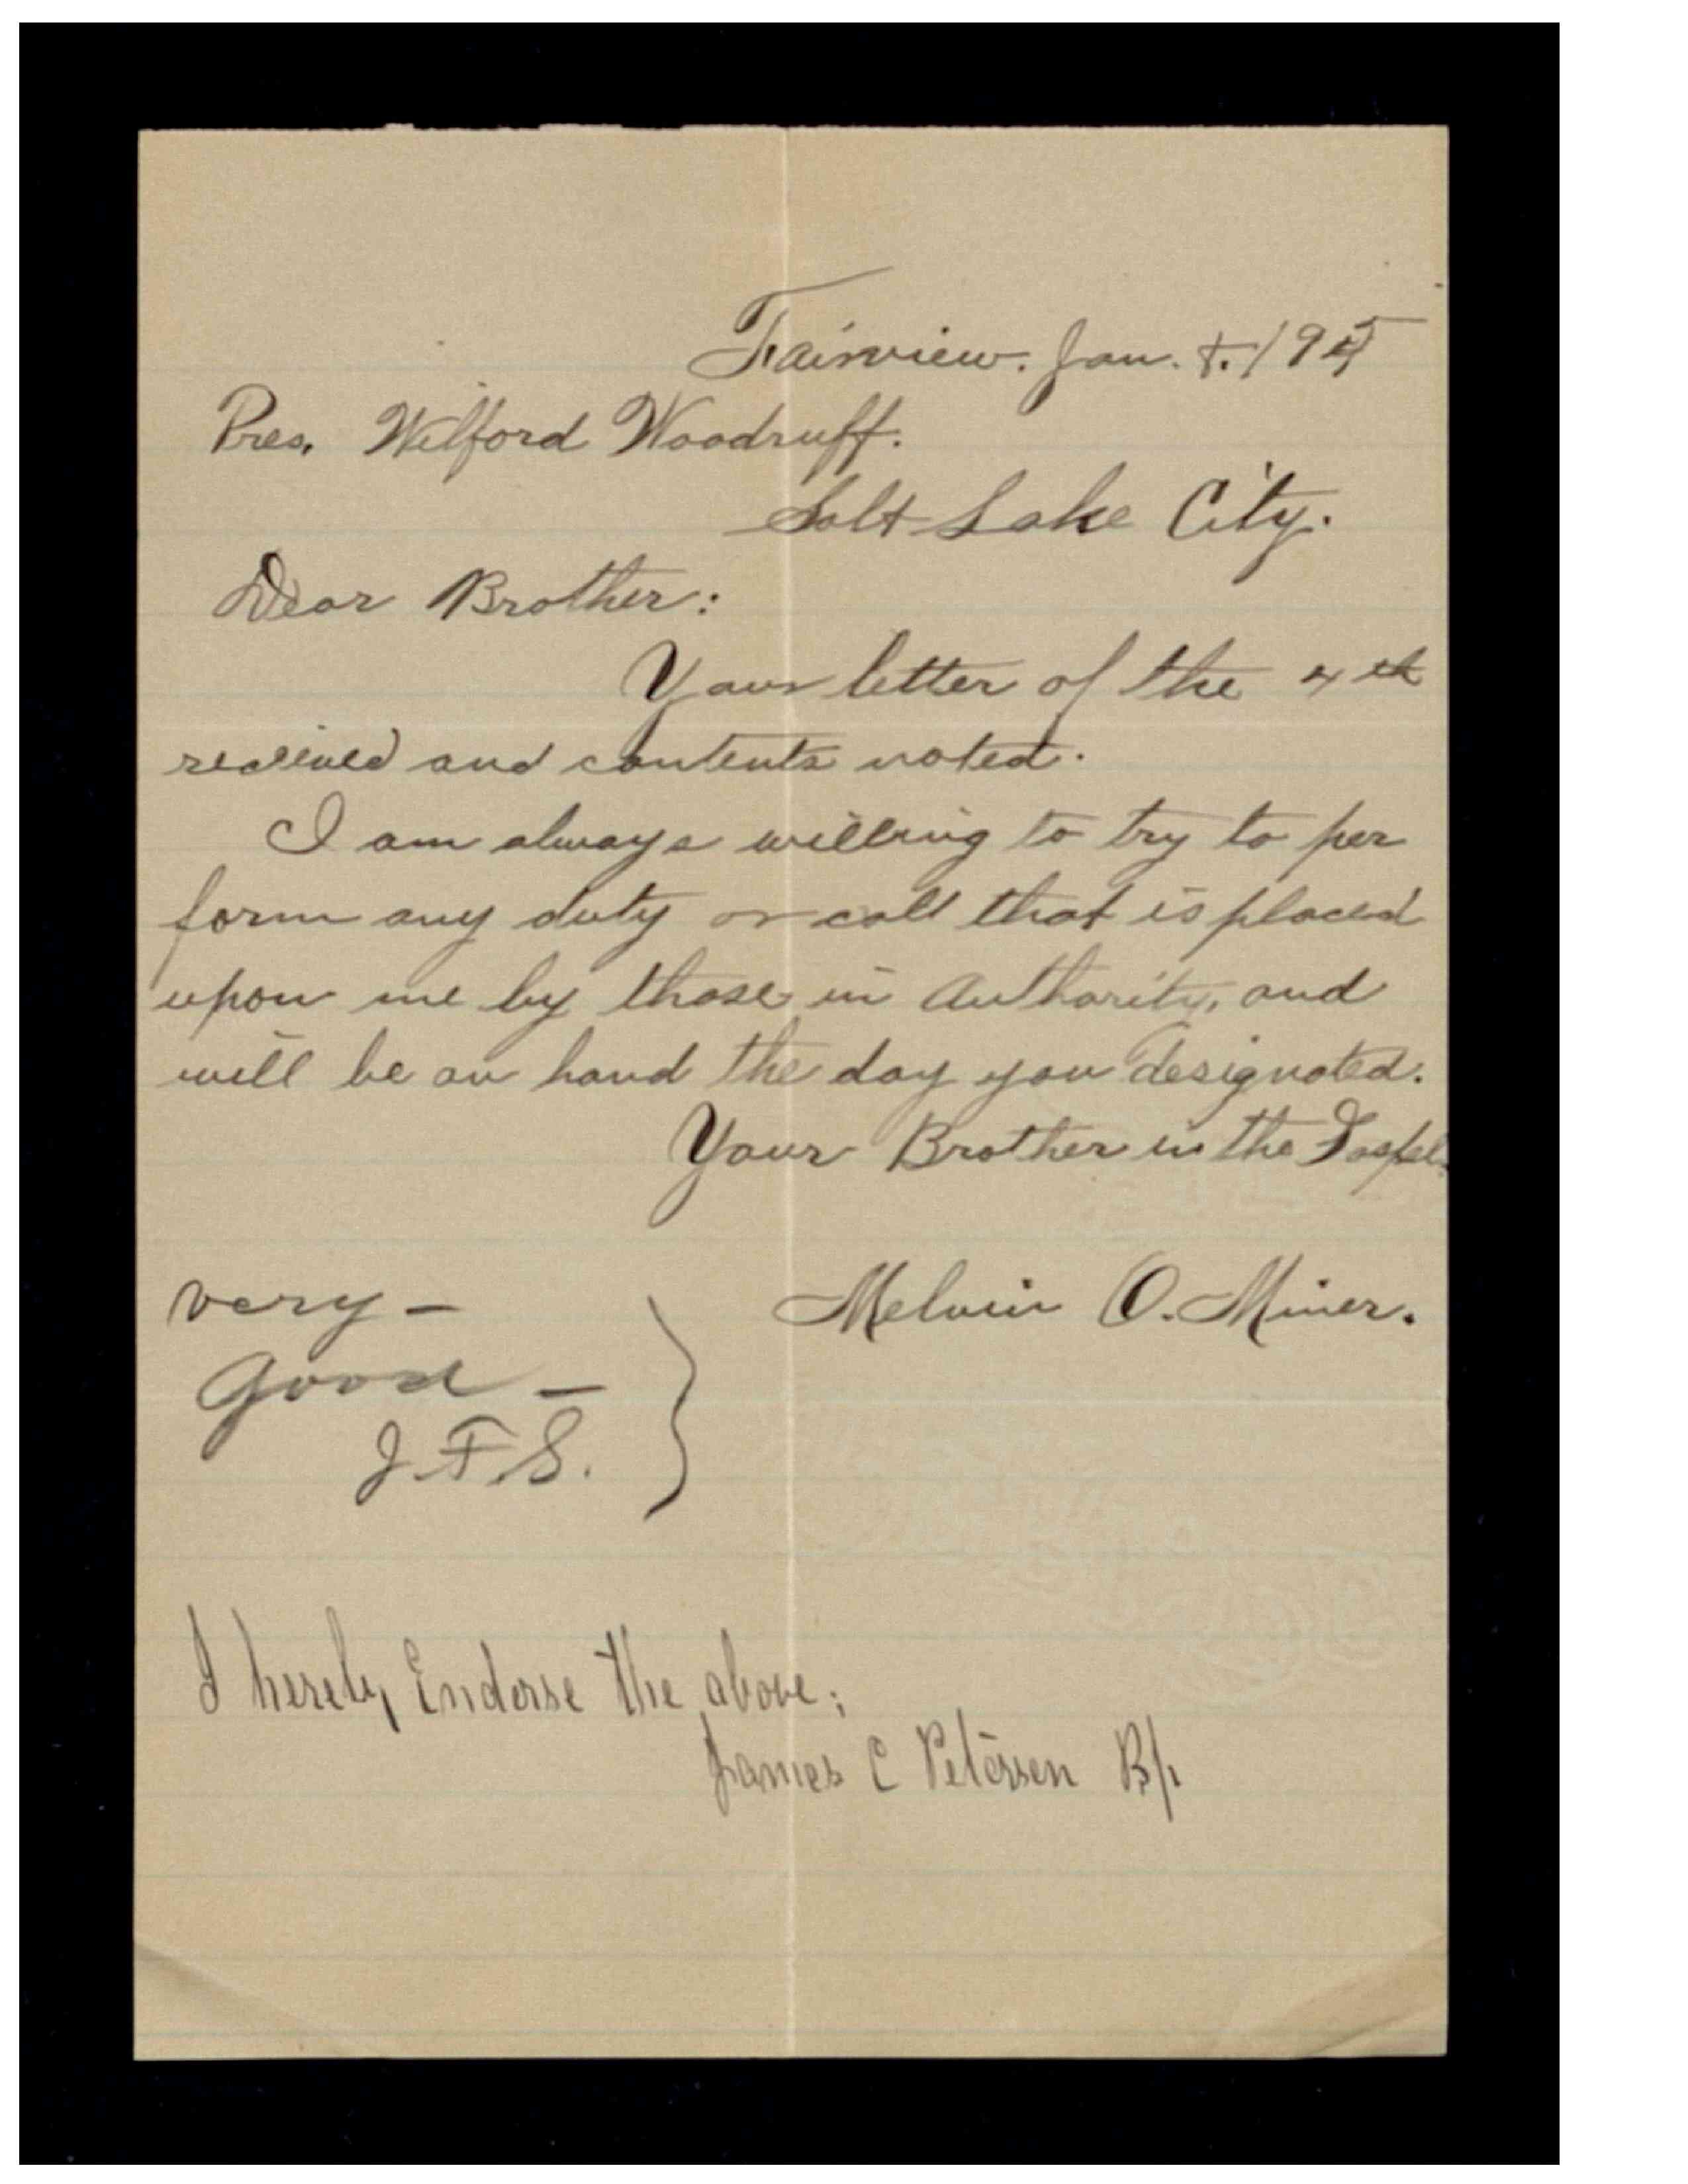 Fairview. Jan.
Pres. Wilford Woodruff.
Salt Lake City.
Dear Brother:
Your letter of the 4th
received and contents noted.
I am always willing to try to per
form any duty or call that is placed
upon me by those in Authority, and
will be on hand the day you designated.
Your Brother in the Gospel.
Melvin O. Miner.
very -
good -
J. F. S.
I hereby Endorse the above;
James C Petersen Bp